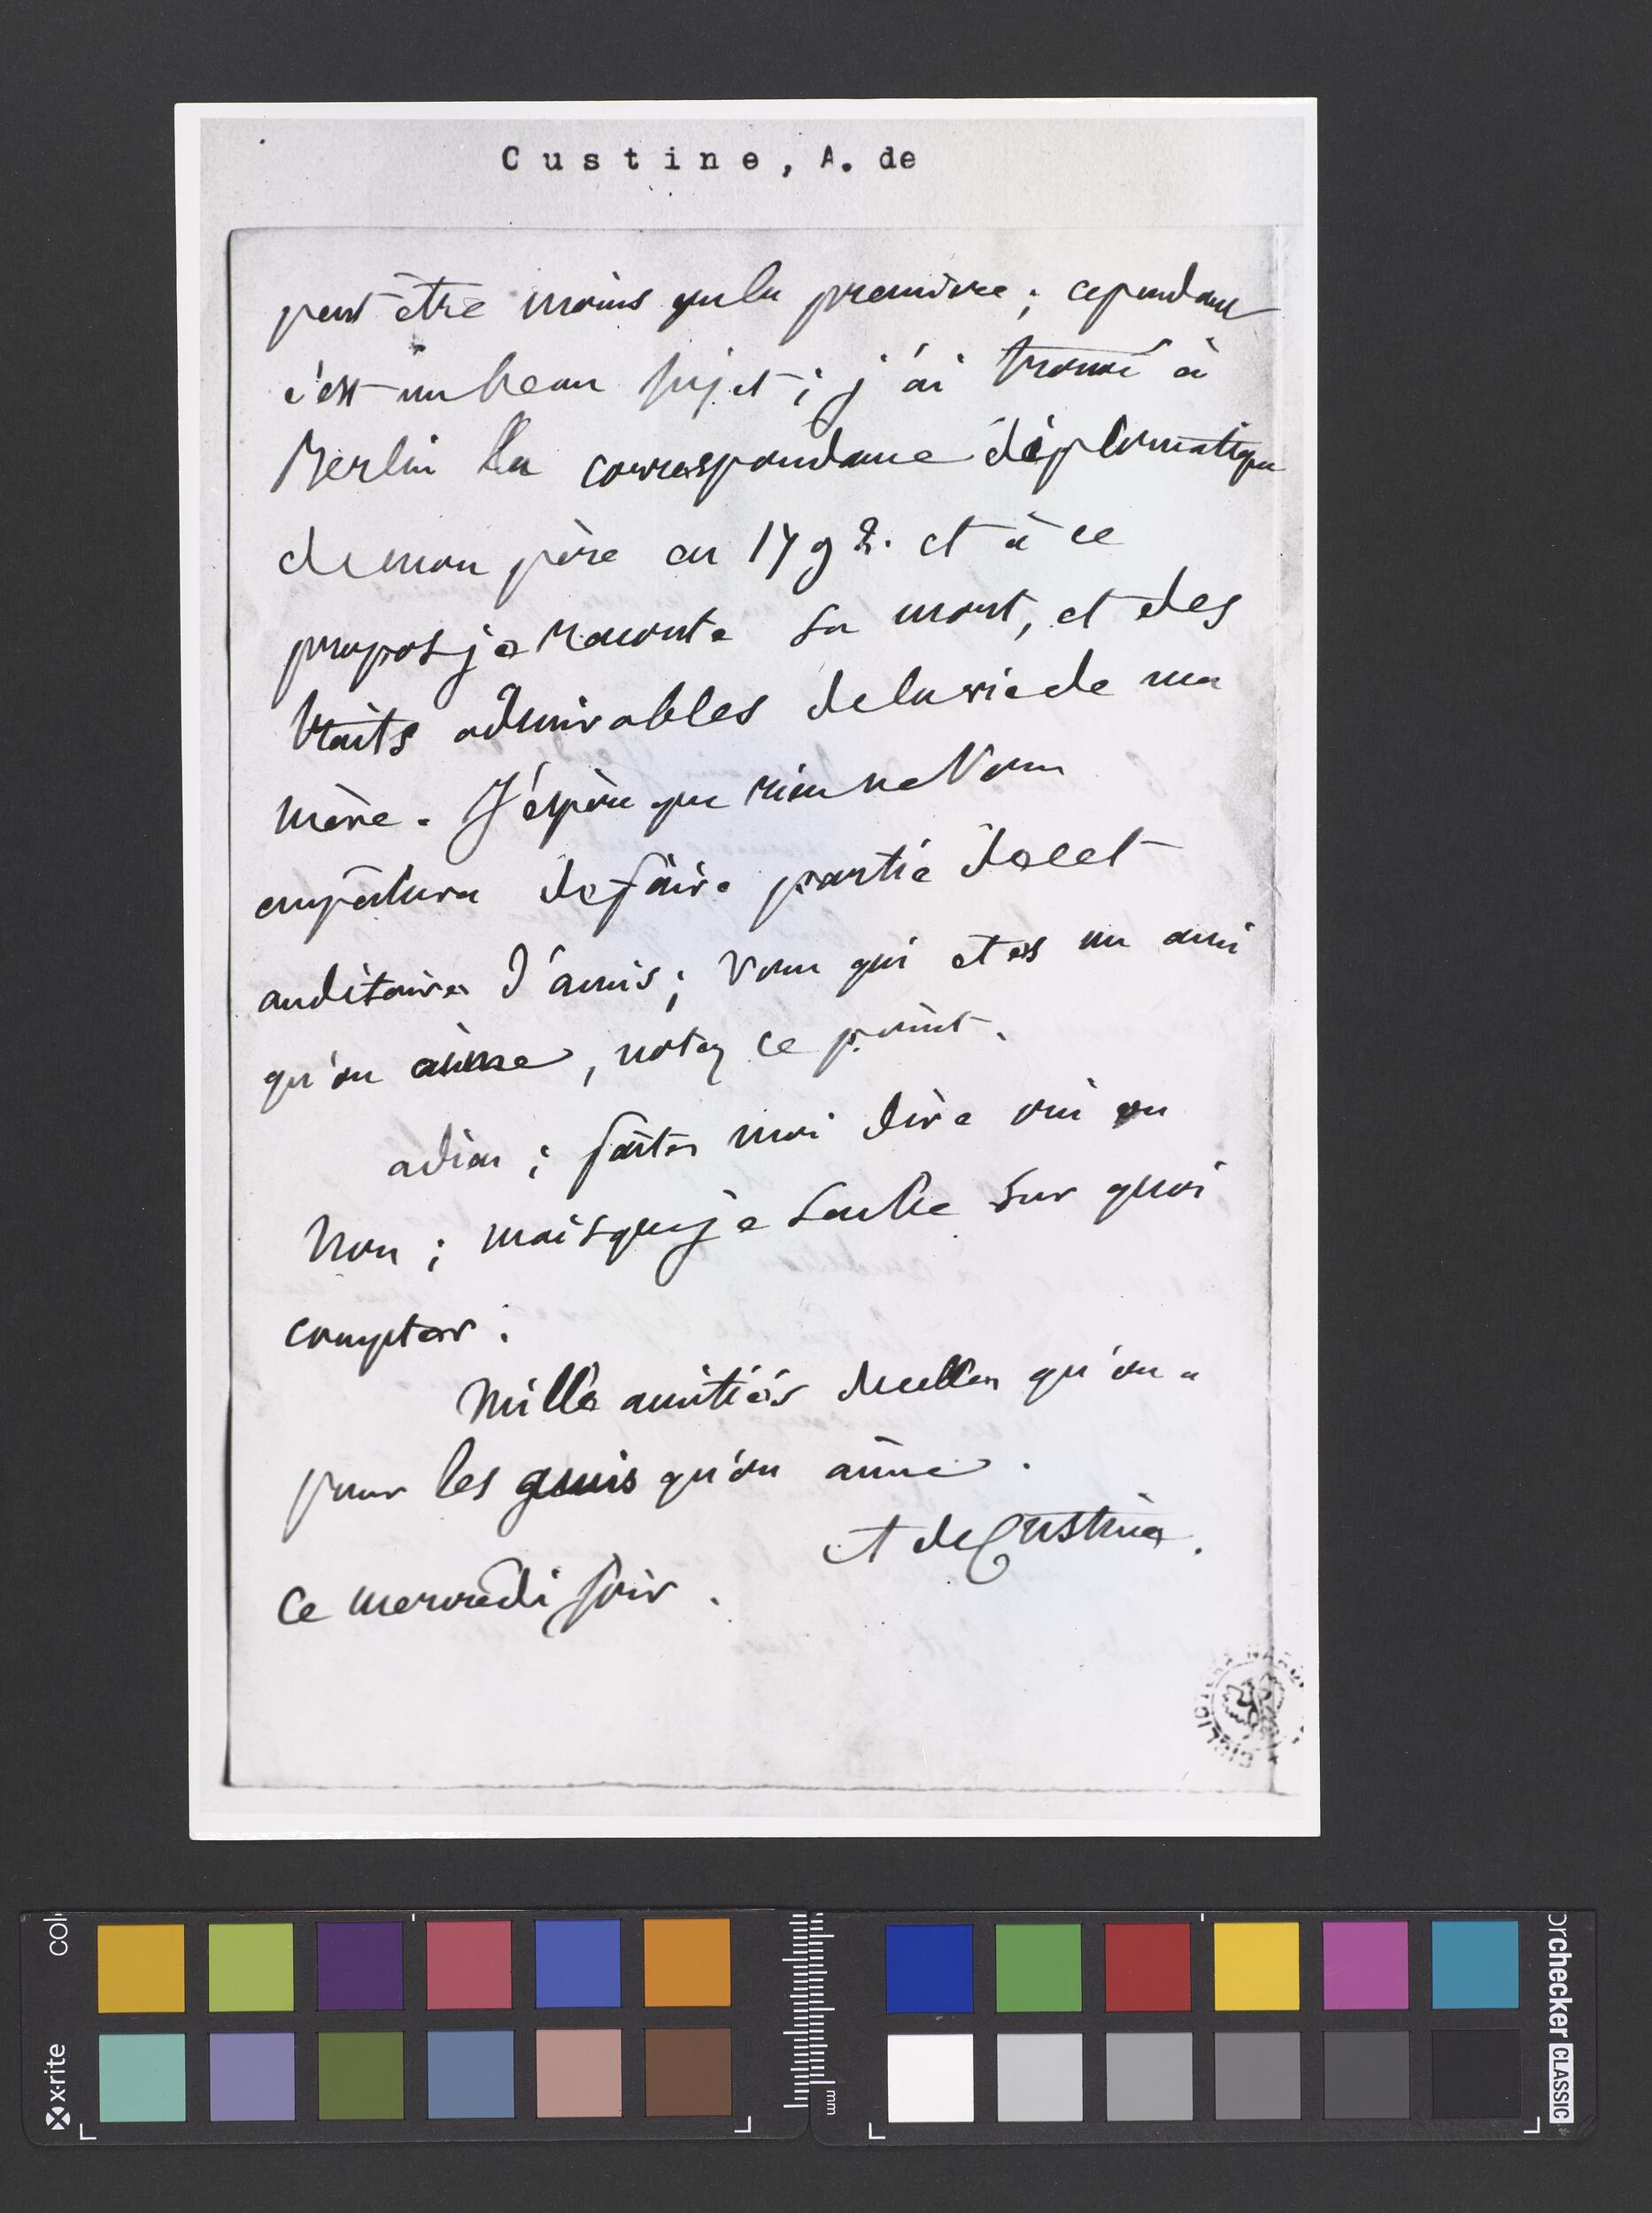 Custine, A. de
peut être moins que la première ; cependant
c'est un beau sujet ; j'ai trouvé à
Berlin la correspondance diplomatique
de mon père en 1792. et à ce
propos je raconte sa mort, et des
traits admirables de la vie de ma
mère. J'espère que rien ne vous
empêchera de faire partie de cet
auditoire d'amis ; vous qui etes un ami
qu'on aime, notez ce point.
adieu ; faites moi dire oui ou
non ; mais que je sache sur quoi
compter.
Mille amitiés de celles qu'on a
pour les amis qu'on aime.
A de Custine.
ce mercredi soir.
x-rite
colorchecker CLASSIC
mm